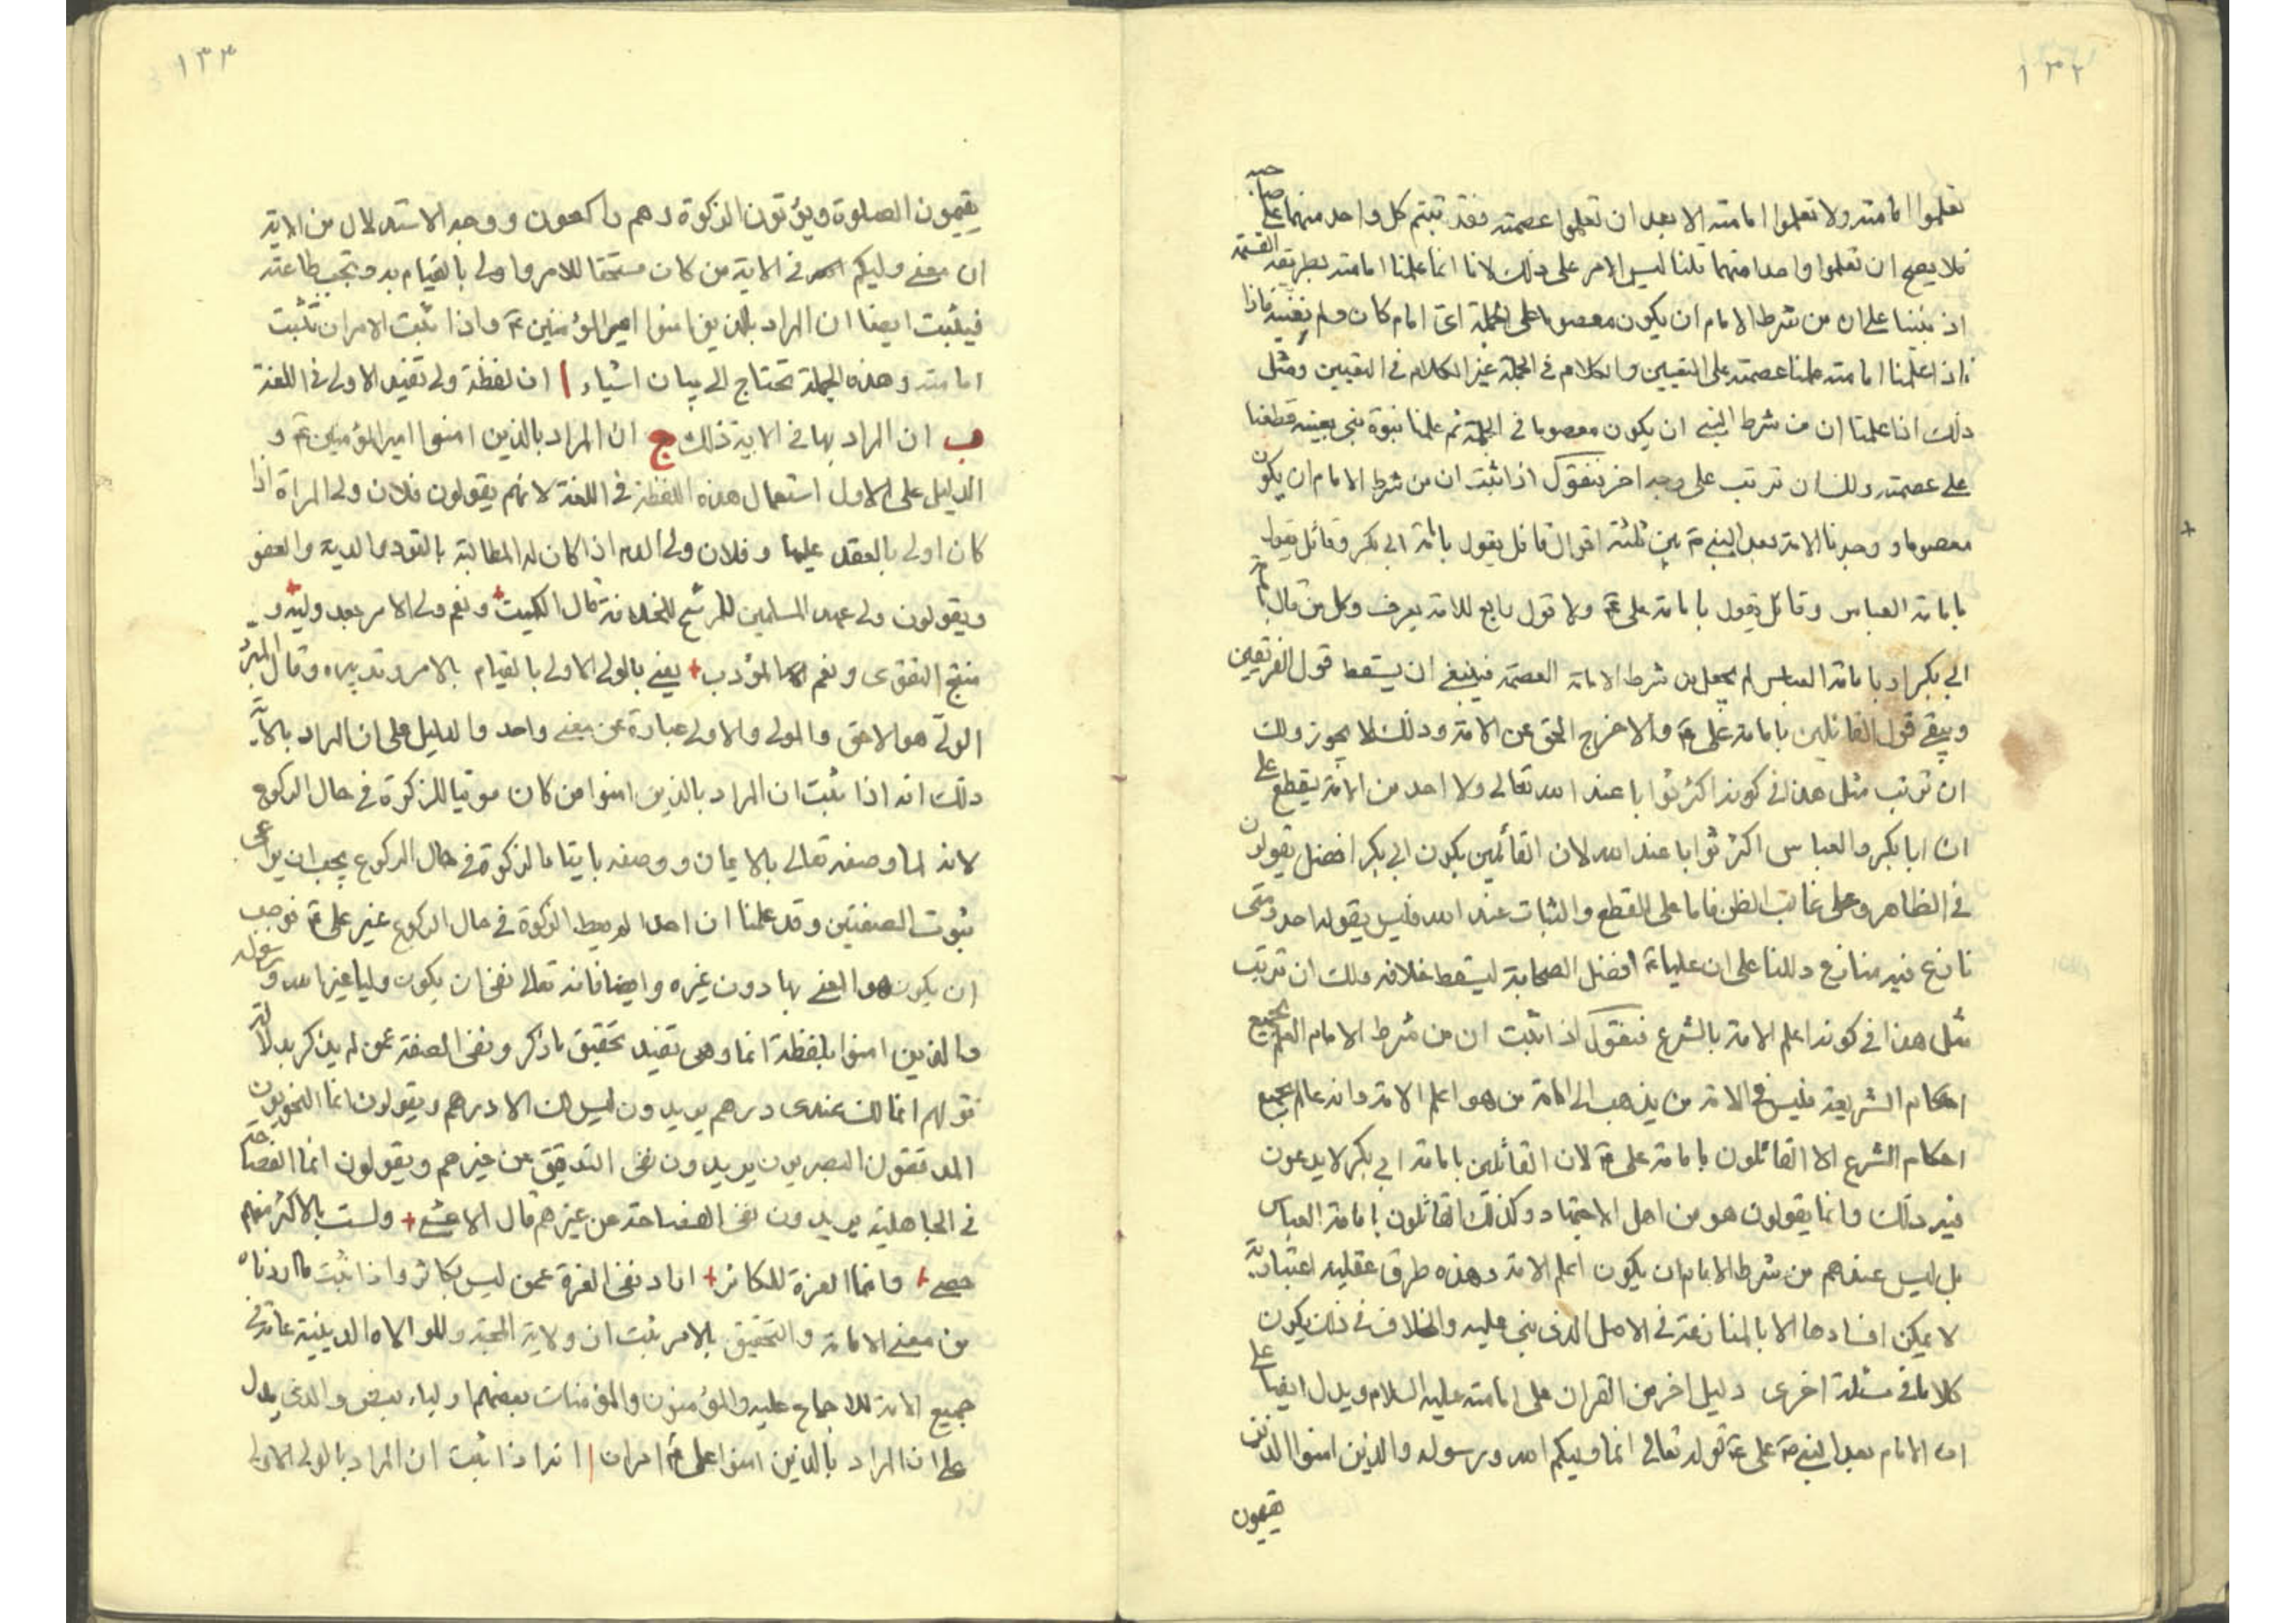 ١٣٢
تعلموا امامته ولا تعلموا امامته الا بعد ان تعلموا عصمته فقد بنيتم كل واحد منهما على صاحبه
فلا يصح ان تعلموا واحدا منهما قلنا ليس الامر على ذلك لانا انما علمنا امامته بطريقة القسمة
اذ بنينا على ان من شرط الامام ان يكون معصوما على الجملة اى امام كان ولم نعينه فاذا
فاذا علمنا امامته علمنا عصمته على التعيين والكلام فى الجملة غير الكلام فى التعيين ومثل
ذلك اذا علمنا ان من شرط النبى ان يكون معصوما فى الجملة ثم علمنا نبوة نبى بعينه قطعنا
على عصمته ولك ان ترتب على وجه اخر فنقول اذا ثبت ان من شرط الامام ان يكون
معصوما و وجدنا الامة بعد النبى ص بين ثلثة اقوال قائل يقول بامامة ابى بكر وقائل يقول
بامامة العباس وقائل يقول بامامة على ع ولا قول رابع للامة يعرف وكل من قال بامامة
ابى بكر او بامامة العباس لم يجعل من شرط الامامة العصمة فينبغى ان يسقط قول الفريقين
ويبقى قول القائلين بامامة على ع والا خرج الحق عن الامة وذلك لا يجوز ولك
ان ترتب مثل هذا فى كونه اكثر ثوابا عند الله تعالى ولا احد من الامة يقطع على
ان ابا بكر والعباس اكثر ثوابا عند الله لان القائلين بكون ابى بكر افضل يقولون
فى الظاهر وعلى غالب الظن فاما على القطع والثبات عند الله فليس يقوله احد ومتى
نازع فيه منازع دللنا على ان عليا ع افضل الصحابة ليسقط خلافه ولك ان ترتب
مثل هذا فى كونه اعلم الامة بالشرع فنقول اذا ثبت ان من شرط الامام العلم بجميع
احكام الشريعة فليس فى الامة من يذهب الى امامة من هو اعلم الامة وانه عالم بجميع
احكام الشرع الا القائلون بامامة على ع لان القائلين بامامة ابى بكر لا يدعون
فيه ذلك وانما يقولون هو من اهل الاجتهاد وكذلك القائلون بامامة العباس
بل ليس عندهم من شرط الامام ان يكون اعلم الامة وهذه طرق عقلية اعتبارية
لا يمكن افسادها الا بالمنازعة فى الاصل الذى بنى عليه والخلاف فى ذلك يكون
كلاما فى مسئلة اخرى دليل اخر من القران على امامته عليه السلام ويدل ايضا على
ان الامام بعد النبى ص على ع قوله تعالى انما وليكم الله ورسوله والذين امنوا الذين
يقيمون
١٣٣
يقيمون الصلوة ويؤتون الزكوة وهم راكعون و وجه الاستدلال من الاية
ان معنى وليكم فى الاية من كان مستحقا للامر واولى بالقيام به وتجب طاعته
فيثبت ايضا ان المراد بالذين امنوا امير المؤمنين ع واذا ثبت الامران ثبت
امامته وهذه الجملة تحتاج الى بيان اشياء ا ان لفظة ولى تفيد الاولى فى اللغة
ب ان المراد بها فى الاية ذلك ج ان المراد بالذين امنوا امير المؤمنين ع و
الدليل على الاول استعمال هذه اللفظة فى اللغة لانهم يقولون فلان ولى المراة اذا
كان اولى بالعقد عليها و فلان ولى الدم اذا كان له المطالبة بالقود او الدية والعفو
ويقولون ولى عهد المسلمين للمرشح للخلافة قال الكميت + ونعم ولى الامر بعد وليه + و
منتجع التقوى ونعم المؤدب + يعنى بالولى الاولى بالقيام بالامر وتدبيره وقال المبرد
الولى هو الاحق والمولى والاولى عبارة عن معنى واحد والدليل على ان المراد بالاية
ذلك انه اذا ثبت ان المراد بالذين امنوا من كان مؤتيا للزكوة فى حال الركوع
لانه لما وصفه تعالى بالايمان و وصفه بايتاء الزكوة فى حال الركوع يجب ان يراعى
ثبوت الصفتين وقد علمنا ان احدا لم يعط الزكوة فى حال الركوع غير على ع فوجب
ان يكون هو المعنى بها دون غيره وايضا فانه تعالى نفى ان يكون وليا غير الله و رسوله
والذين امنوا بلفظة انما وهى تفيد تحقيق ما ذكر ونفى الصفة عمن لم يذكر بدلالة
قولهم انما لك عندى درهم يريدون ليس لك الا درهم ويقولون انما النحويون
المدققون البصريون يريدون نفى التدقيق عن غيرهم ويقولون انما الفصاحة
فى الجاهلية يريدون نفى الفصاحة عن غيرهم قال الاعشى + ولست بالاكثر منهم
حصى + وانما العزة للكاثر + اراد نفى العزة عمن ليس بكاثر واذا ثبت ما اردناه
من معنى الامامة والتحقيق بالامر ثبت ان ولاية المحبة والموالاة الدينية عامة فى
جميع الامة للاجماع عليه والمؤمنون والمؤمنات بعضهم اولياء بعض والذى يدل
على ان المراد بالذين امنوا على ع امران ا انه اذا ثبت ان المراد بالولى الاولى